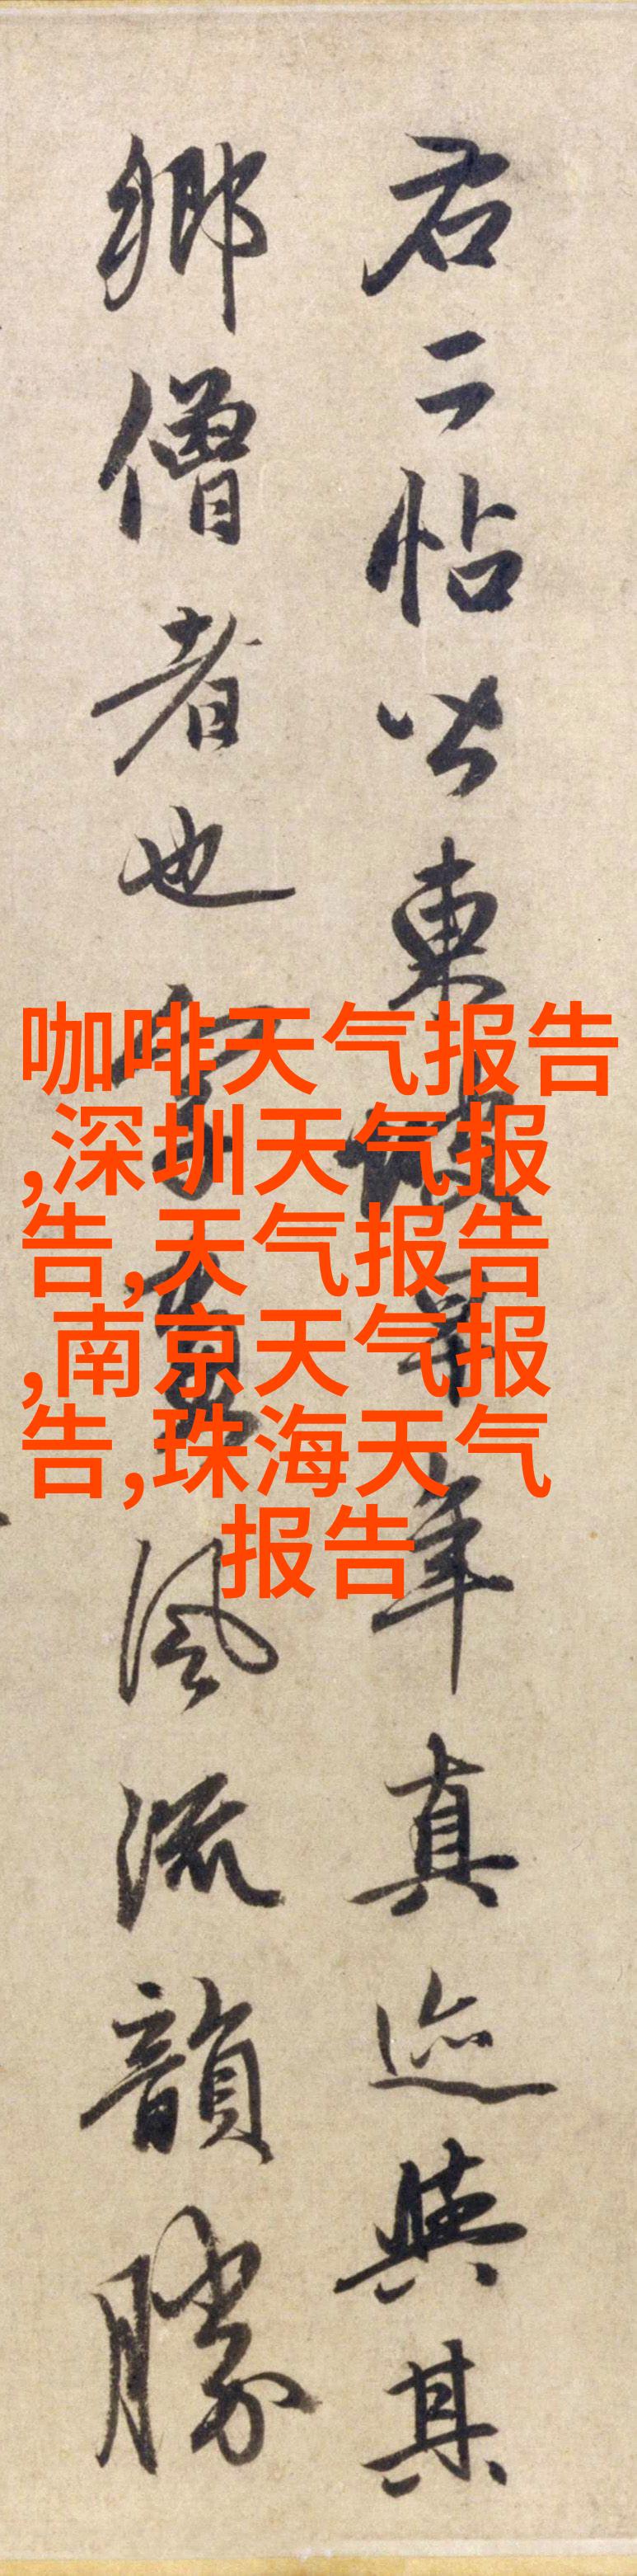 右二帖皆東坡早年真迹與其
鄉僧者也字畫風流韻勝
咖啡天气报告
,深圳天气报
告,天气报告
,南京天气报
告,珠海天气
报告